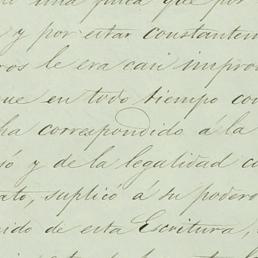 una finca que por
y por estar constantem
ros le era casi impro
que en todo tiempo con
ha correspondido á la
só y de la legalidad c
ato, suplicó á su podero
nido de esta Escritura,